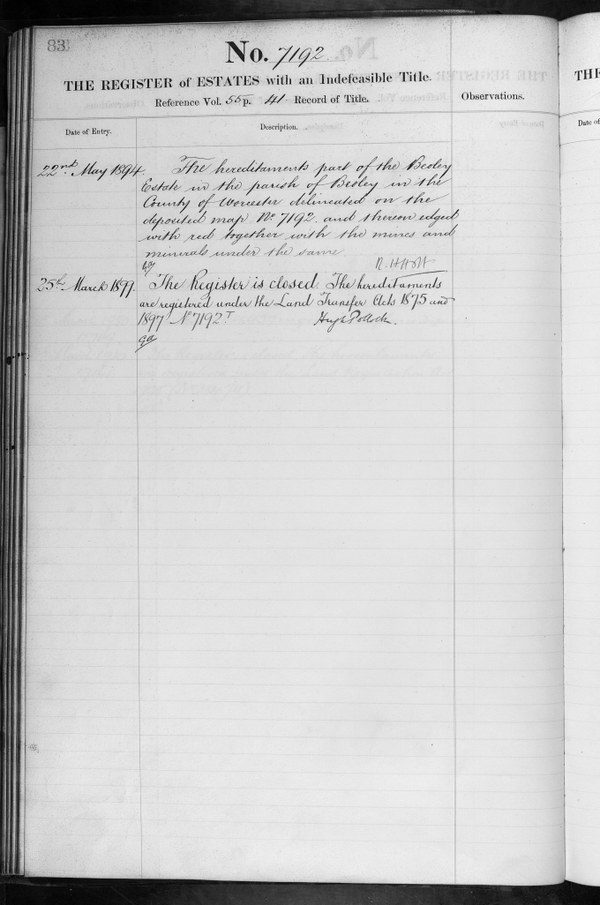 83
No. 7192
THE REGISTER of ESTATES with an Indefeasible Title.
Reference Vol. 55 p. 41 Record of Title.
Observations.
Date of Entry.
Description.
22nd May 1894.
The hereditaments part of the Beoley
Estate in the parish of Beoley in the
County of Worcester delineated on the
deposited map No 7192 and thereon edged
with red together with the mines and
minerals under the same.
25th March 1899.
The Register is closed. The hereditaments
are registered under the Land Transfer Acts 1875 and
1897 No 7192T
Hugh Pollock.
THE
Date of